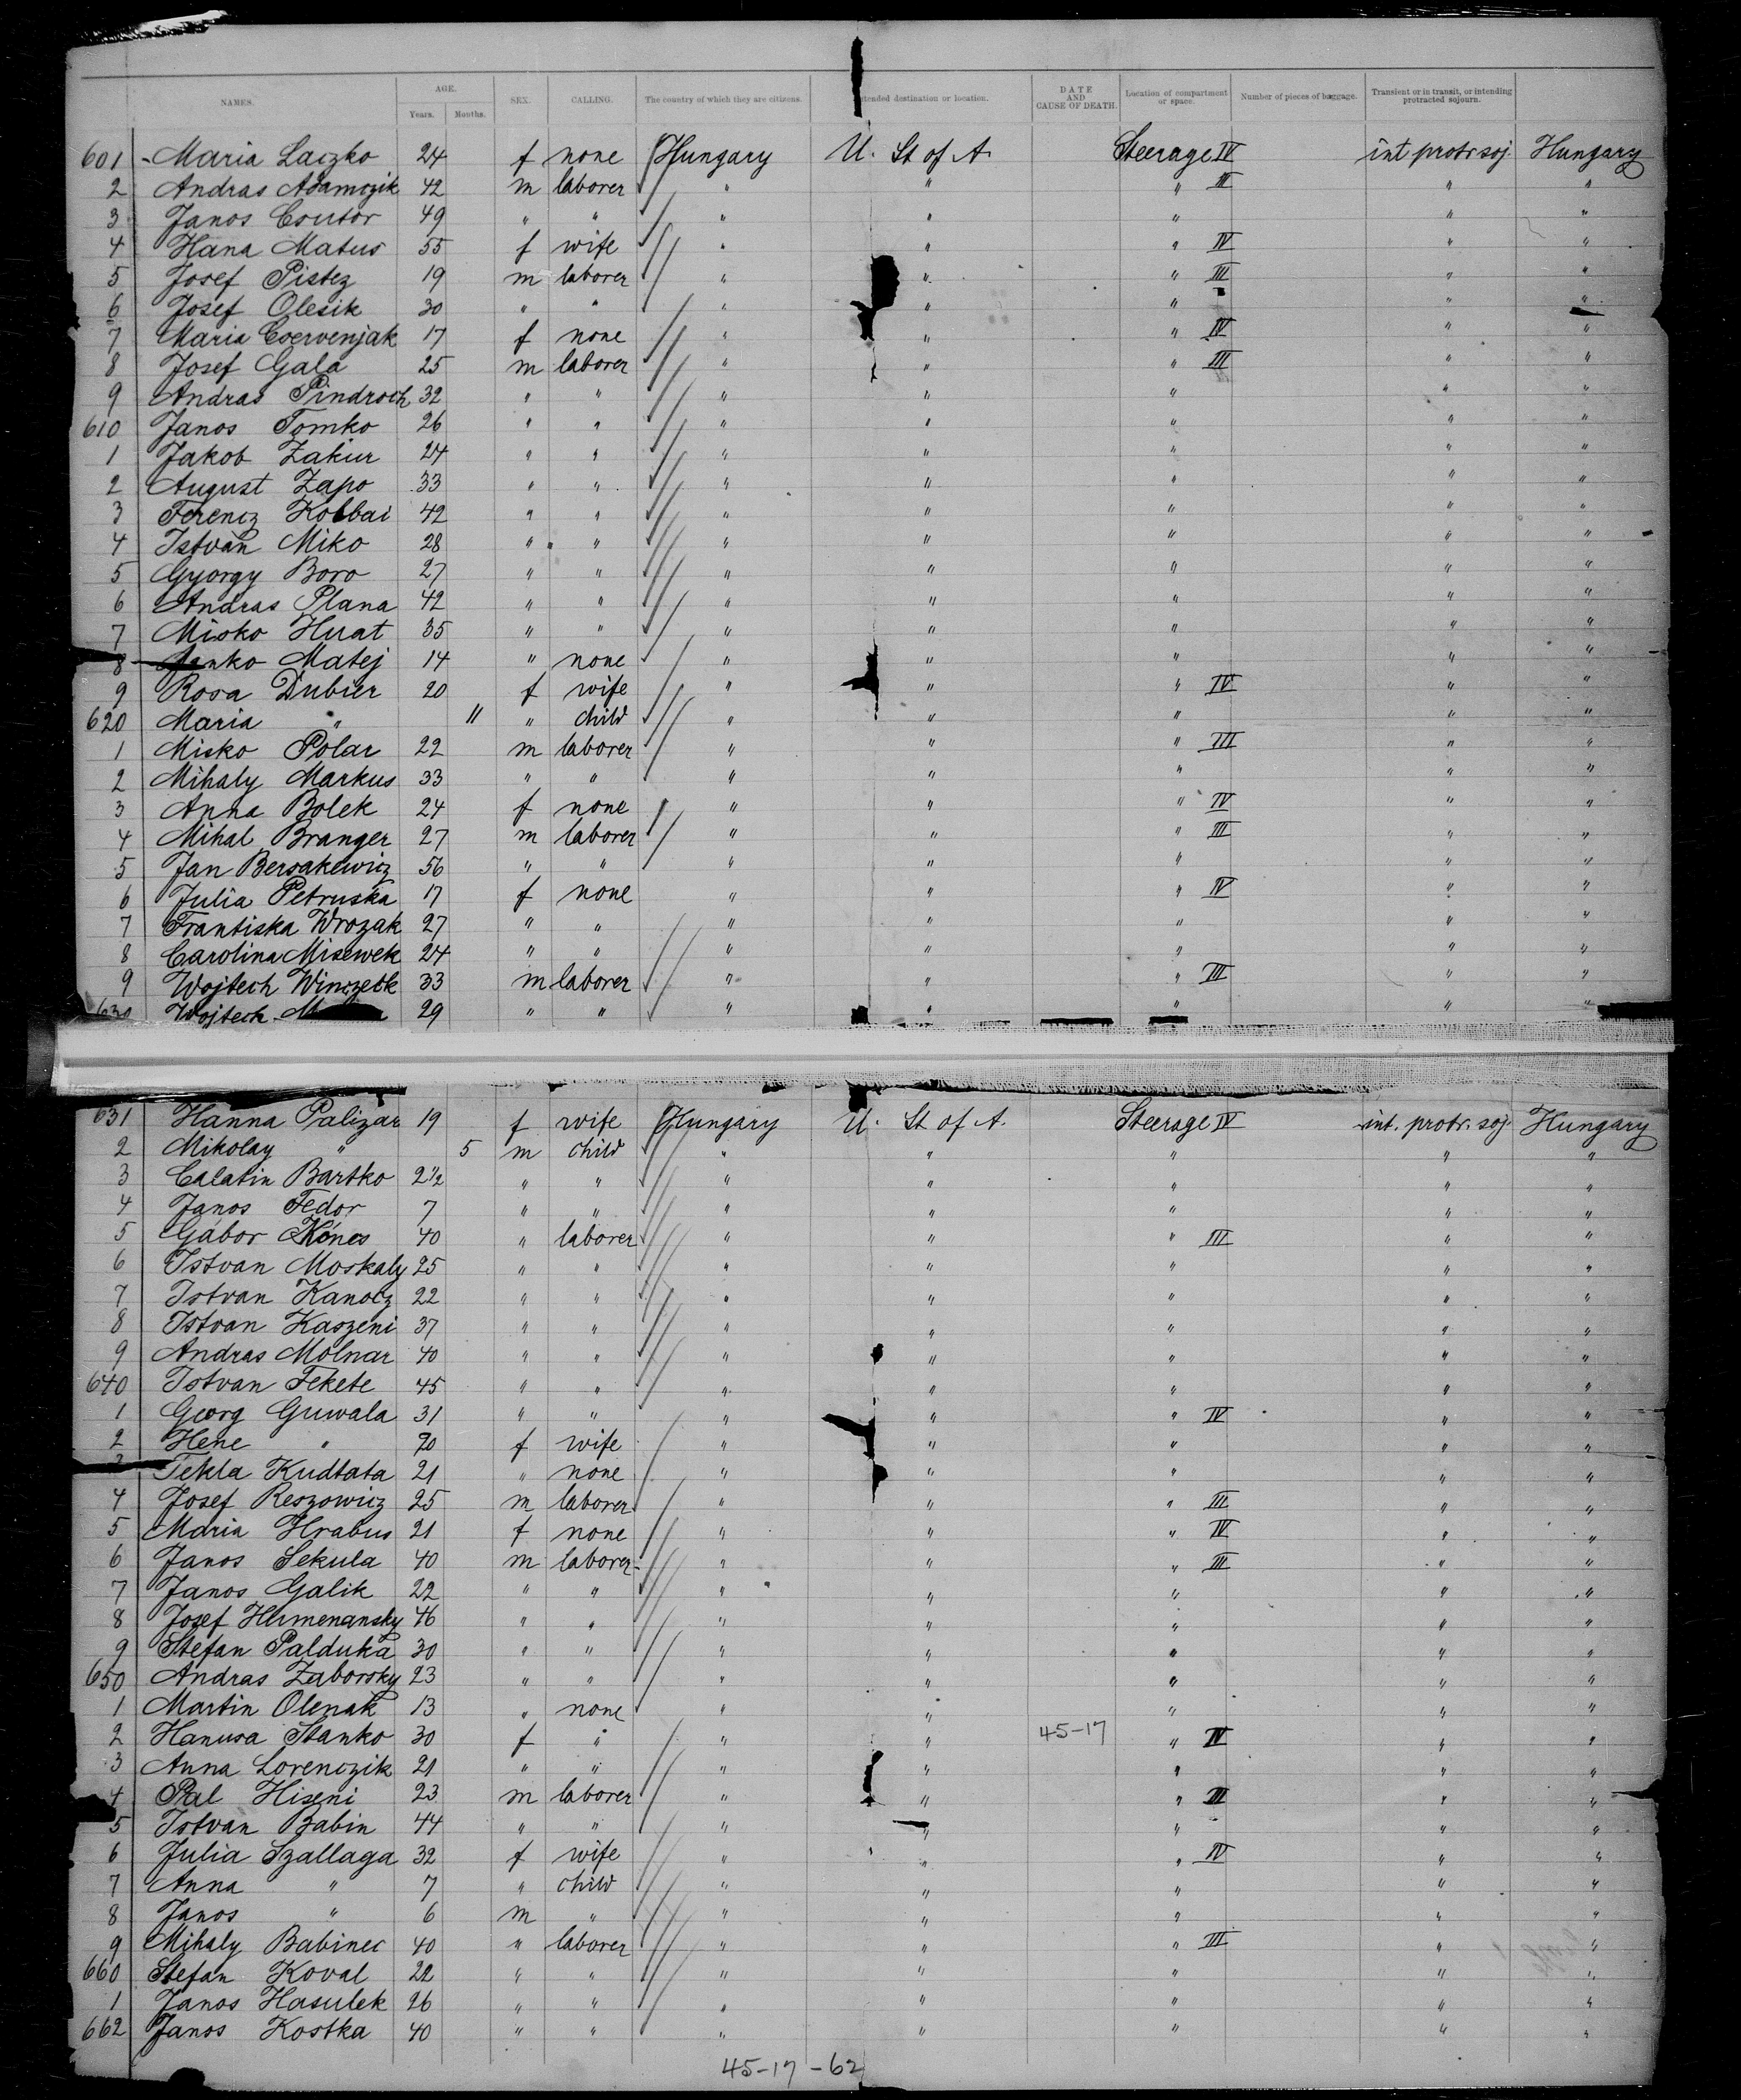 NAMES. AGE. Years. Months. SEX. CALLING. The country of which they are citizens. tended destination or location. DATE AND CAUSE OF DEATH. Location of compartment or space. Number of pieces of baggage. Transient or in transit, or intending protracted sojourn.
601 Maria Laczko 24 f none Hungary U. St of A. Steerage IV int protr soj. Hungary
2 Andras Adamczik 42 m laborer " " " III " "
3 Janos Coutor 49 " " " " " " "
4 Hana Matus 55 f wife " " " IV " "
5 Josef Pistez 19 m laborer " " " III " "
6 Josef Olesik 30 " " " " " " "
7 Maria Czervenjak 17 f none " " " IV " "
8 Josef Gala 25 m laborer " " " III " "
9 Andras Pindroch 32 " " " " " " "
610 Janos Tomko 26 " " " " " " "
1 Jakob Zakiur 24 " " " " " " "
2 August Zapo 33 " " " " " " "
3 Ferencz Kobbai 42 " " " " " " "
4 Istvan Miko 28 " " " " " " "
5 Gyorgy Boro 27 " " " " " " "
6 Andras Plana 42 " " " " " " "
7 Misko Huat 35 " " " " " " "
8 Janko Matej 14 " none " " " " "
9 Rosa Dubier 20 f wife " " " IV " "
620 Maria " 11 " child " " " " "
1 Misko Polar 22 m laborer " " " III " "
2 Mihaly Markus 33 " " " " " " "
3 Anna Bolek 24 f none " " " IV " "
4 Mihal Branger 27 m laborer " " " III " "
5 Jan Bersakewicz 56 " " " " " " "
6 Julia Petruska 17 f none " " " IV " "
7 Frantiska Wrozak 27 " " " " " " "
8 Carolina Misewek 24 " " " " " " "
9 Wojtech Winczetk 33 m laborer " " " III " "
630 Wojtech 29 " " " " " " "
631 Hanna Palizar 19 f wife Hungary U. St of A. Steerage IV int. protr. soj. Hungary
2 Mikolay " 5 m child " " " " "
3 Calatin Bartko 2 1/2 " " " " " " "
4 Janos Fedor 7 " " " " " " "
5 Gábor Kónes 40 " laborer " " " III " "
6 Istvan Moskaly 25 " " " " " " "
7 Istvan Kanocz 22 " " " " " " "
8 Istvan Kaszeni 37 " " " " " " "
9 Andras Molnar 40 " " " " " " "
640 Istvan Fekete 45 " " " " " " "
1 Georg Guwala 31 " " " " " IV " "
2 Hene " 20 f wife " " " " "
3 Tekla Kudtata 21 " none " " " " "
4 Josef Reszowicz 25 m laborer " " " III " "
5 Maria Hrabus 21 f none " " " IV " "
6 Janos Sekula 40 m laborer " " " III " "
7 Janos Galik 22 " " " " " " "
8 Josef Humenansky 46 " " " " " " "
9 Stefan Palduka 30 " " " " " " "
650 Andras Zaborsky 23 " " " " " " "
1 Martin Olenak 13 " none " " " " "
2 Hanusa Stanko 30 f " " " 45-17 " IV " "
3 Anna Lorenczik 21 " " " " " " "
4 Pal Hiseni 23 m laborer " " " III " "
5 Istvan Babin 44 " " " " " " "
6 Julia Szallaga 32 f wife " " " IV " "
7 Anna " 7 " child " " " " "
8 Janos " 6 m " " " " " "
9 Mihaly Babinec 40 " laborer " " " III " "
660 Stefan Koval 22 " " " " " " "
1 Janos Hasulek 26 " " " " " " "
662 Janos Kostka 40 " " " " " " "
45-17-62